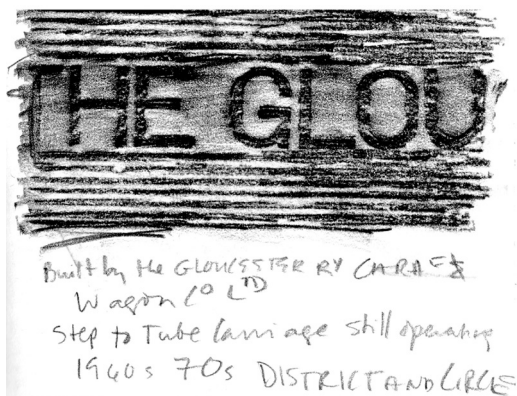 THE GLOU
Built by the GLOUCESTER RY CARR &
Wagon Co LTD
Step to Tube Carriage still operating
1960s 70s DISTRICT AND CIRCLE